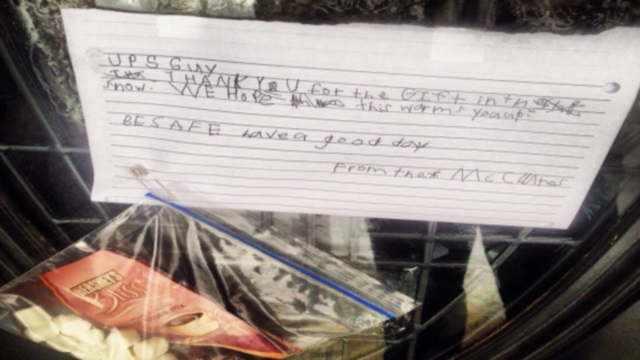 UPS GUY
THANK YOU for the GIFT in the
snow. WE HOPE this warms you up!
BE SAFE have a good day
From the McClures
Bliss